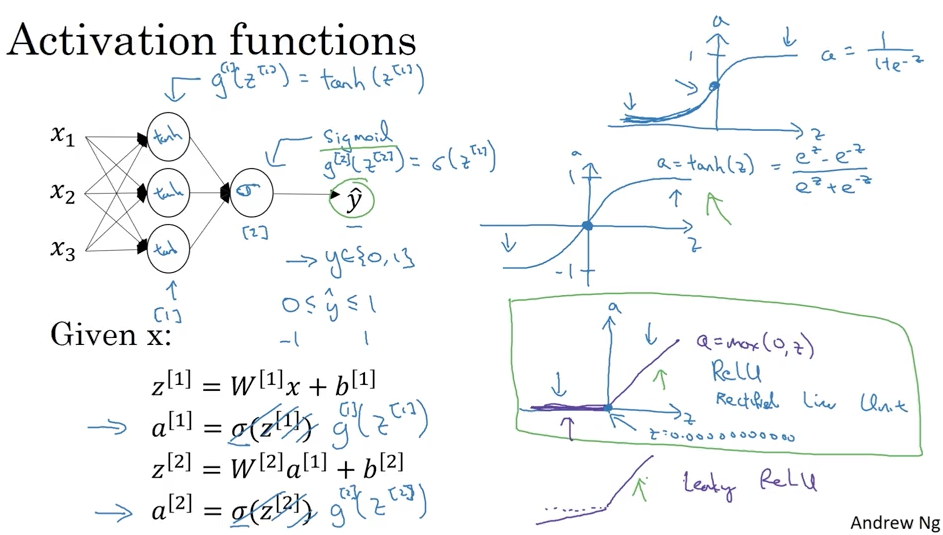 Activation functions
g^[1](z^[1]) = tanh(z^[1])
x₁
x₂
x₃
tanh
tanh
tanh
[1]
sigmoid
g^[2](z^[2]) = σ(z^[2])
σ
[2]
ŷ
→ y∈{0,1}
0 ≤ ŷ ≤ 1
-1 1
Given x:
z^[1] = W^[1]x + b^[1]
→ a^[1] = σ(z^[1]) g^[1](z^[1])
z^[2] = W^[2]a^[1] + b^[2]
→ a^[2] = σ(z^[2]) g^[2](z^[2])
a
1
z
a = 1/(1+e^-z)
a
1
-1
z
a = tanh(z) = (e^z - e^-z)/(e^z + e^-z)
a
z
a = max(0,z)
ReLU
Rectified Linear Unit
z=0.00000000000
Leaky ReLU
Andrew Ng